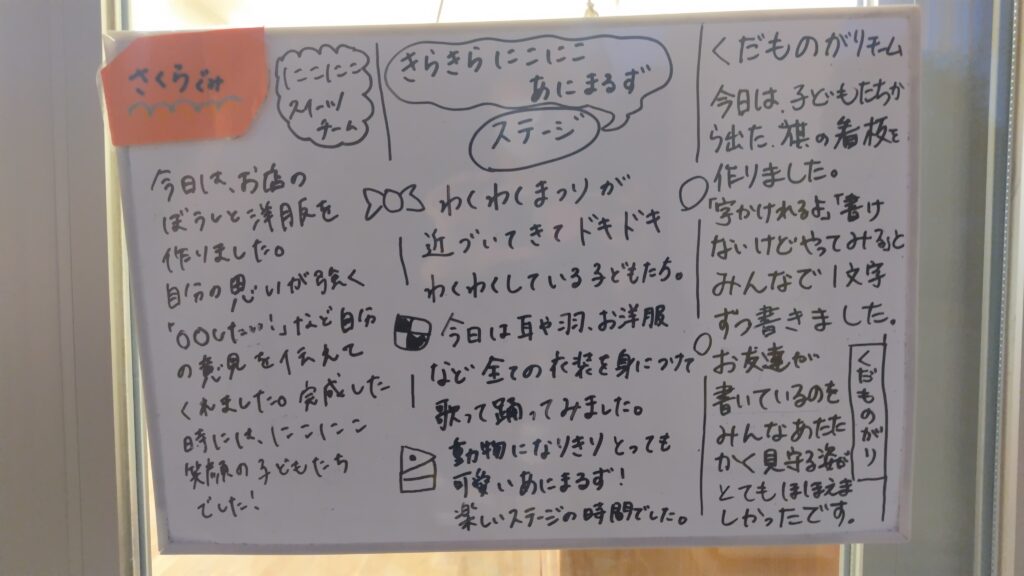 さくらぐみ
にこにこ
スイーツ
チーム
今日は、お店の
ぼうしと洋服を
作りました。
自分の思いが強く
「〇〇したい!」など自分
の意見を伝えて
くれました。完成した
時には、にこにこ
笑顔の子どもたち
でした!
きらきらにこにこ
あにまるず
ステージ
わくわくまつりが
近づいてきてドキドキ
わくわくしている子どもたち。
今日は耳や羽、お洋服
など全ての衣装を身につけて
歌って踊ってみました。
動物になりきりとっても
可愛いあにまるず!
楽しいステージの時間でした。
くだものがりチーム
今日は、子どもたちか
ら出た、旗の看板を
作りました。
「字かけれるよ」「書け
ないけどやってみる」と
みんなで1文字
ずつ書きました。
お友達が
書いているのを
みんなあたた
かく見守る姿が
とてもほほえま
しかったです。
くだものがり